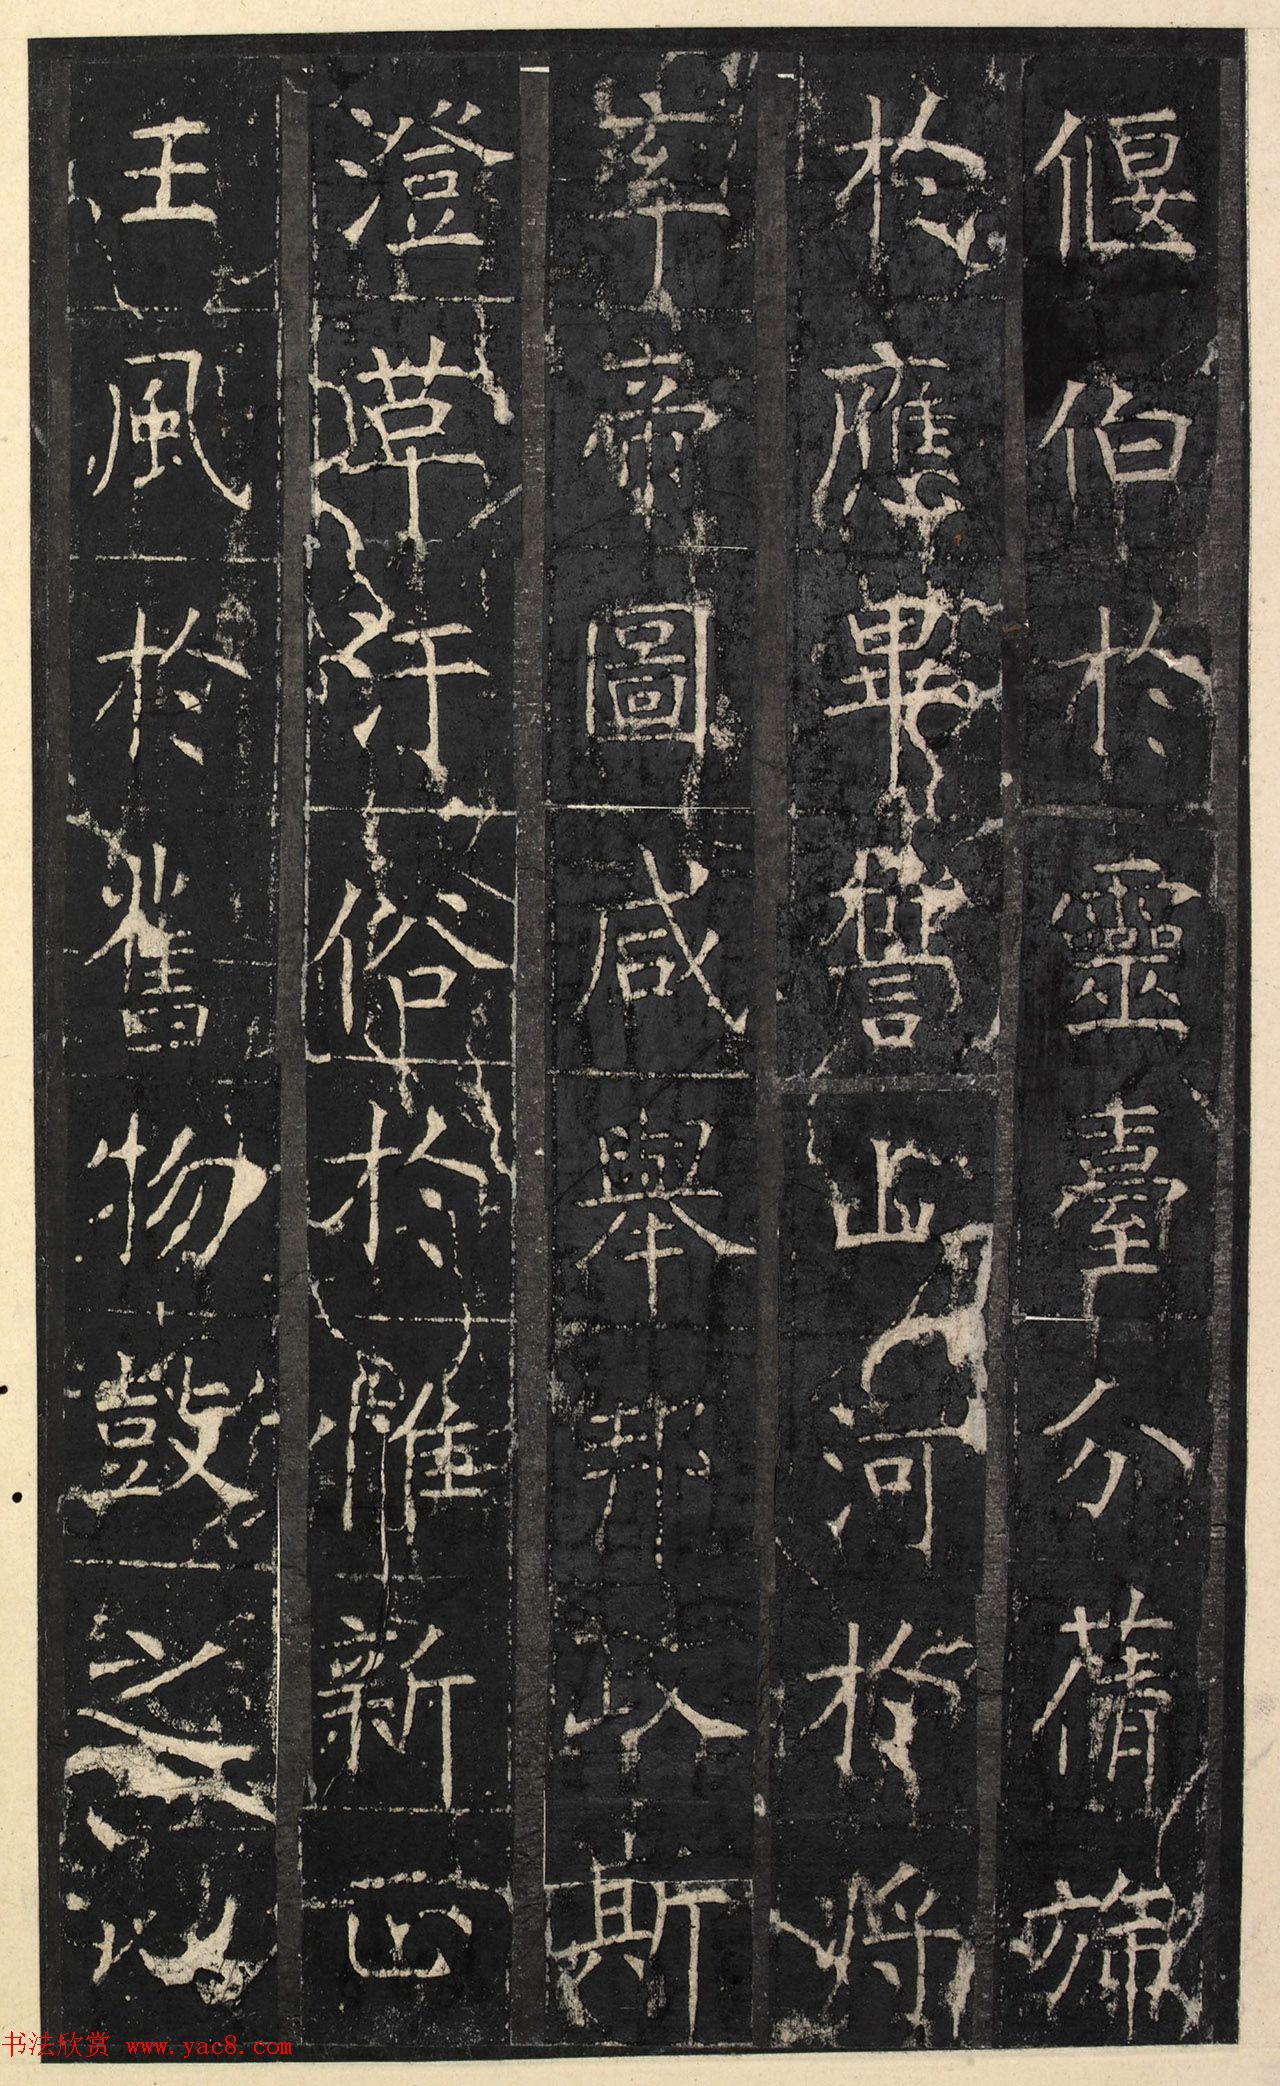 偃伯於靈臺分蒨旆
於應畢誓山河於將
率帝圖咸舉邦政斯
澄草汙俗於惟新正
王風於舊物鼓之以
书法欣赏 www.yac8.com